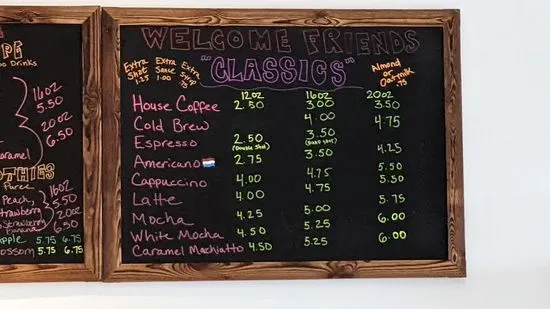 PE
oo Drinks
16oz
5.50
20oz
6.50
Caramel
OTHIES
Puree
Peach,
Strawberry
Strawberry
Banana
16oz
5.50
20oz
6.50
apple 5.75 6.75
ossom 5.75 6.75
WELCOME FRIENDS
"CLASSICS"
Extra Shot 1.25
Extra Sauce 1.00
Extra Syrup .75
Almond or Oatmilk .75
12oz 16oz 20oz
House Coffee 2.50 3.00 3.50
Cold Brew 4.00 4.75
Espresso 2.50 (Double Shot) 3.50 (Quad Shot)
Americano 2.75 3.50 4.25
Cappuccino 4.00 4.75 5.50
Latte 4.00 4.75 5.50
Mocha 4.25 5.00 5.75
White Mocha 4.50 5.25 6.00
Caramel Machiatto 4.50 5.25 6.00